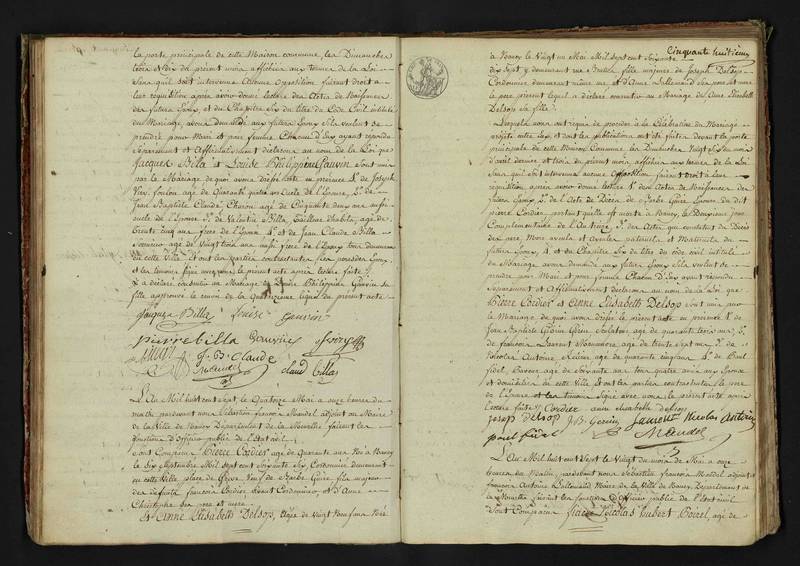 la porte principale de cette Maison commune les Dimanches
du présent mois affichés aux termes de la Loi
sans qu'il soit intervenu aucune opposition faisant droit à
leur réquisition après avoir donné lecture des Actes de Naissances
des futurs Epoux et du Chapitre Six du titre du Code Civil intitulé
du Mariage, avons demandé aux futurs Epoux s'ils veulent se
prendre pour Mari et pour femme Chacun d'Eux ayant répondu
Séparément et Affirmativement déclarons au nom de la Loi que
Jacques Billa et Louise Philippine Gauvin Sont unis
par le Mariage de quoi avons dressé Acte en présence de Joseph
âgé de Quarante quatre ans oncle de l'Epoux, 2.° de
Jean Baptiste Claude Charon âgé de Cinquante deux ans aussi
oncle de l'Epouse 3.° de Valentin Billa, Tailleur d'habits, agé de
trente cinq ans frère de l'Epoux 4.° et de Jean Claude Billa
âgé de Vingt trois ans aussi frère de l'Epoux tous demeurans
en cette Ville Et ont les parties contractantes
et les témoins signé avec nous le présent acte après lecture faite
a déclaré consentir au Mariage de Louise Philippine Gauvin sa
fille approuvé le renvoi de la Quatorzième ligne du présent acte
Jacques Billa Louise Gauvin
pierre billa Gauvin
J. B. Claude
Mandel claud billas
L'An Mil huit cent Sept le Quatorze Mai à onze heures du
matin pardevant nous Sébastien françois Mandel adjoint au Maire
de la Ville de Nancy Département de la Meurthe faisant les
fonctions d'Officier public de l'Etat civil
Sont Comparus Pierre Cordier agé de Quarante ans Né à Nancy
le Six Septembre Mil Sept cent Soixante Six Cordonnier demeurant
en cette Ville place de Grève fils majeur
des défunts francois Cordier Vivant Cordonnier et d'Anne
Christophe ses père et mère
Et Anne Elisabeth Delsop, agée de Vingt Neuf ans Née
Cinquante huitième
à Nancy le Vingt un Mai Mil Sept cent Soixante
dix Sept y demeurant rue fille majeure de Joseph Delsop
Cordonnier demeurant même rue et d'Anne ses père et mère
le père présent lequel a déclaré consentir au Mariage de Anne Elisabeth
Delsop sa fille
Lesquels nous ont requis de procéder à la Célébration du Mariage
projeté entre Eux et dont les publications ont été faites devant la porte
principale de cette Maison Commune les Dimanches Vingt Six du mois
d'avril dernier et trois du présent mois affichés aux termes de la Loi
sans qu'il soit intervenu aucune Opposition faisant Droit à leur
réquisition après avoir donné lecture 1.° des Actes de Naissances des
futurs Epoux 2.° de l'Acte de Décès de
pierre Cordier, portant qu'elle est morte à Nancy, le Deuxième jour
Complémentaire de l'An treize 3.° des Actes qui constatent le Décès
des père, Mère ayeuls et ayeules paternels et Maternels du
futur Epoux et du Chapitre Six du titre du code civil intitulé
du Mariage avons demandé aux futurs Epoux s'ils veulent se
prendre pour Mari et pour femme Chacun d'Eux ayant répondu
Séparément et Affirmativement déclarons au nom de la Loi que
Pierre Cordier et Anne Elisabeth Delsop Sont unis par
le Mariage de quoi avons dressé le présent acte en présence 1.° de
Jean Baptiste agé de quarante trois ans 2.°
de francois Laurent Manœuvre agé de trente sept ans 3.° de
Nicolas Antoine agé de quarante cinq ans 4.° de Paul
fidel, Buveur agé de Soixante ans tous quatre amis aux Epoux
et domiciliés en cette Ville Et ont les parties contractantes le père
de l'Epouse et les témoins Signé avec nous le présent acte après
lecture faite Cordier anne elisabeth delsop
Josep Delsop J. B. Laurent Nicolas Antoine
paul fidel Mandel
L'An Mil huit cent Sept le Vingt du mois de Mai à onze
heures du Matin, pardevant nous Sébastien françois Mandel adjoint au
françois Antoine Maire de la Ville de Nancy Département de
la Meurthe faisant les fonctions d'Officier public de l'Etat civil
Sont Comparus Nicolas hubert Poirel, agé de